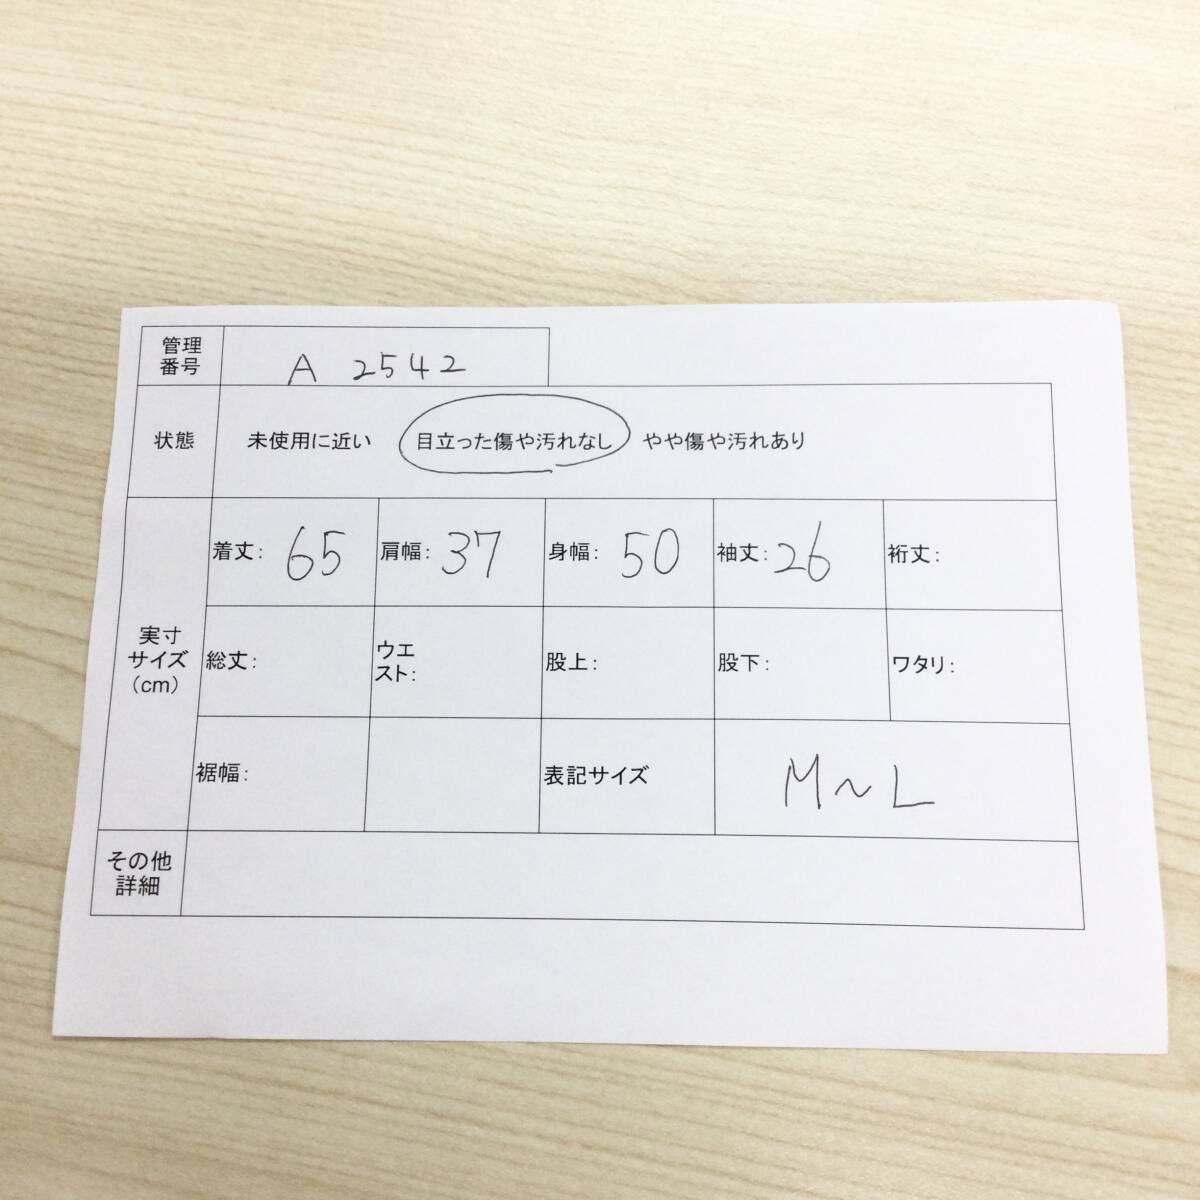 管理
番号
A 2542
状態
未使用に近い 目立った傷や汚れなし やや傷や汚れあり
実寸
サイズ
(cm)
着丈: 65
肩幅: 37
身幅: 50
袖丈: 26
裄丈:
総丈:
ウエ
スト:
股上:
股下:
ワタリ:
裾幅:
表記サイズ
M～L
その他
詳細